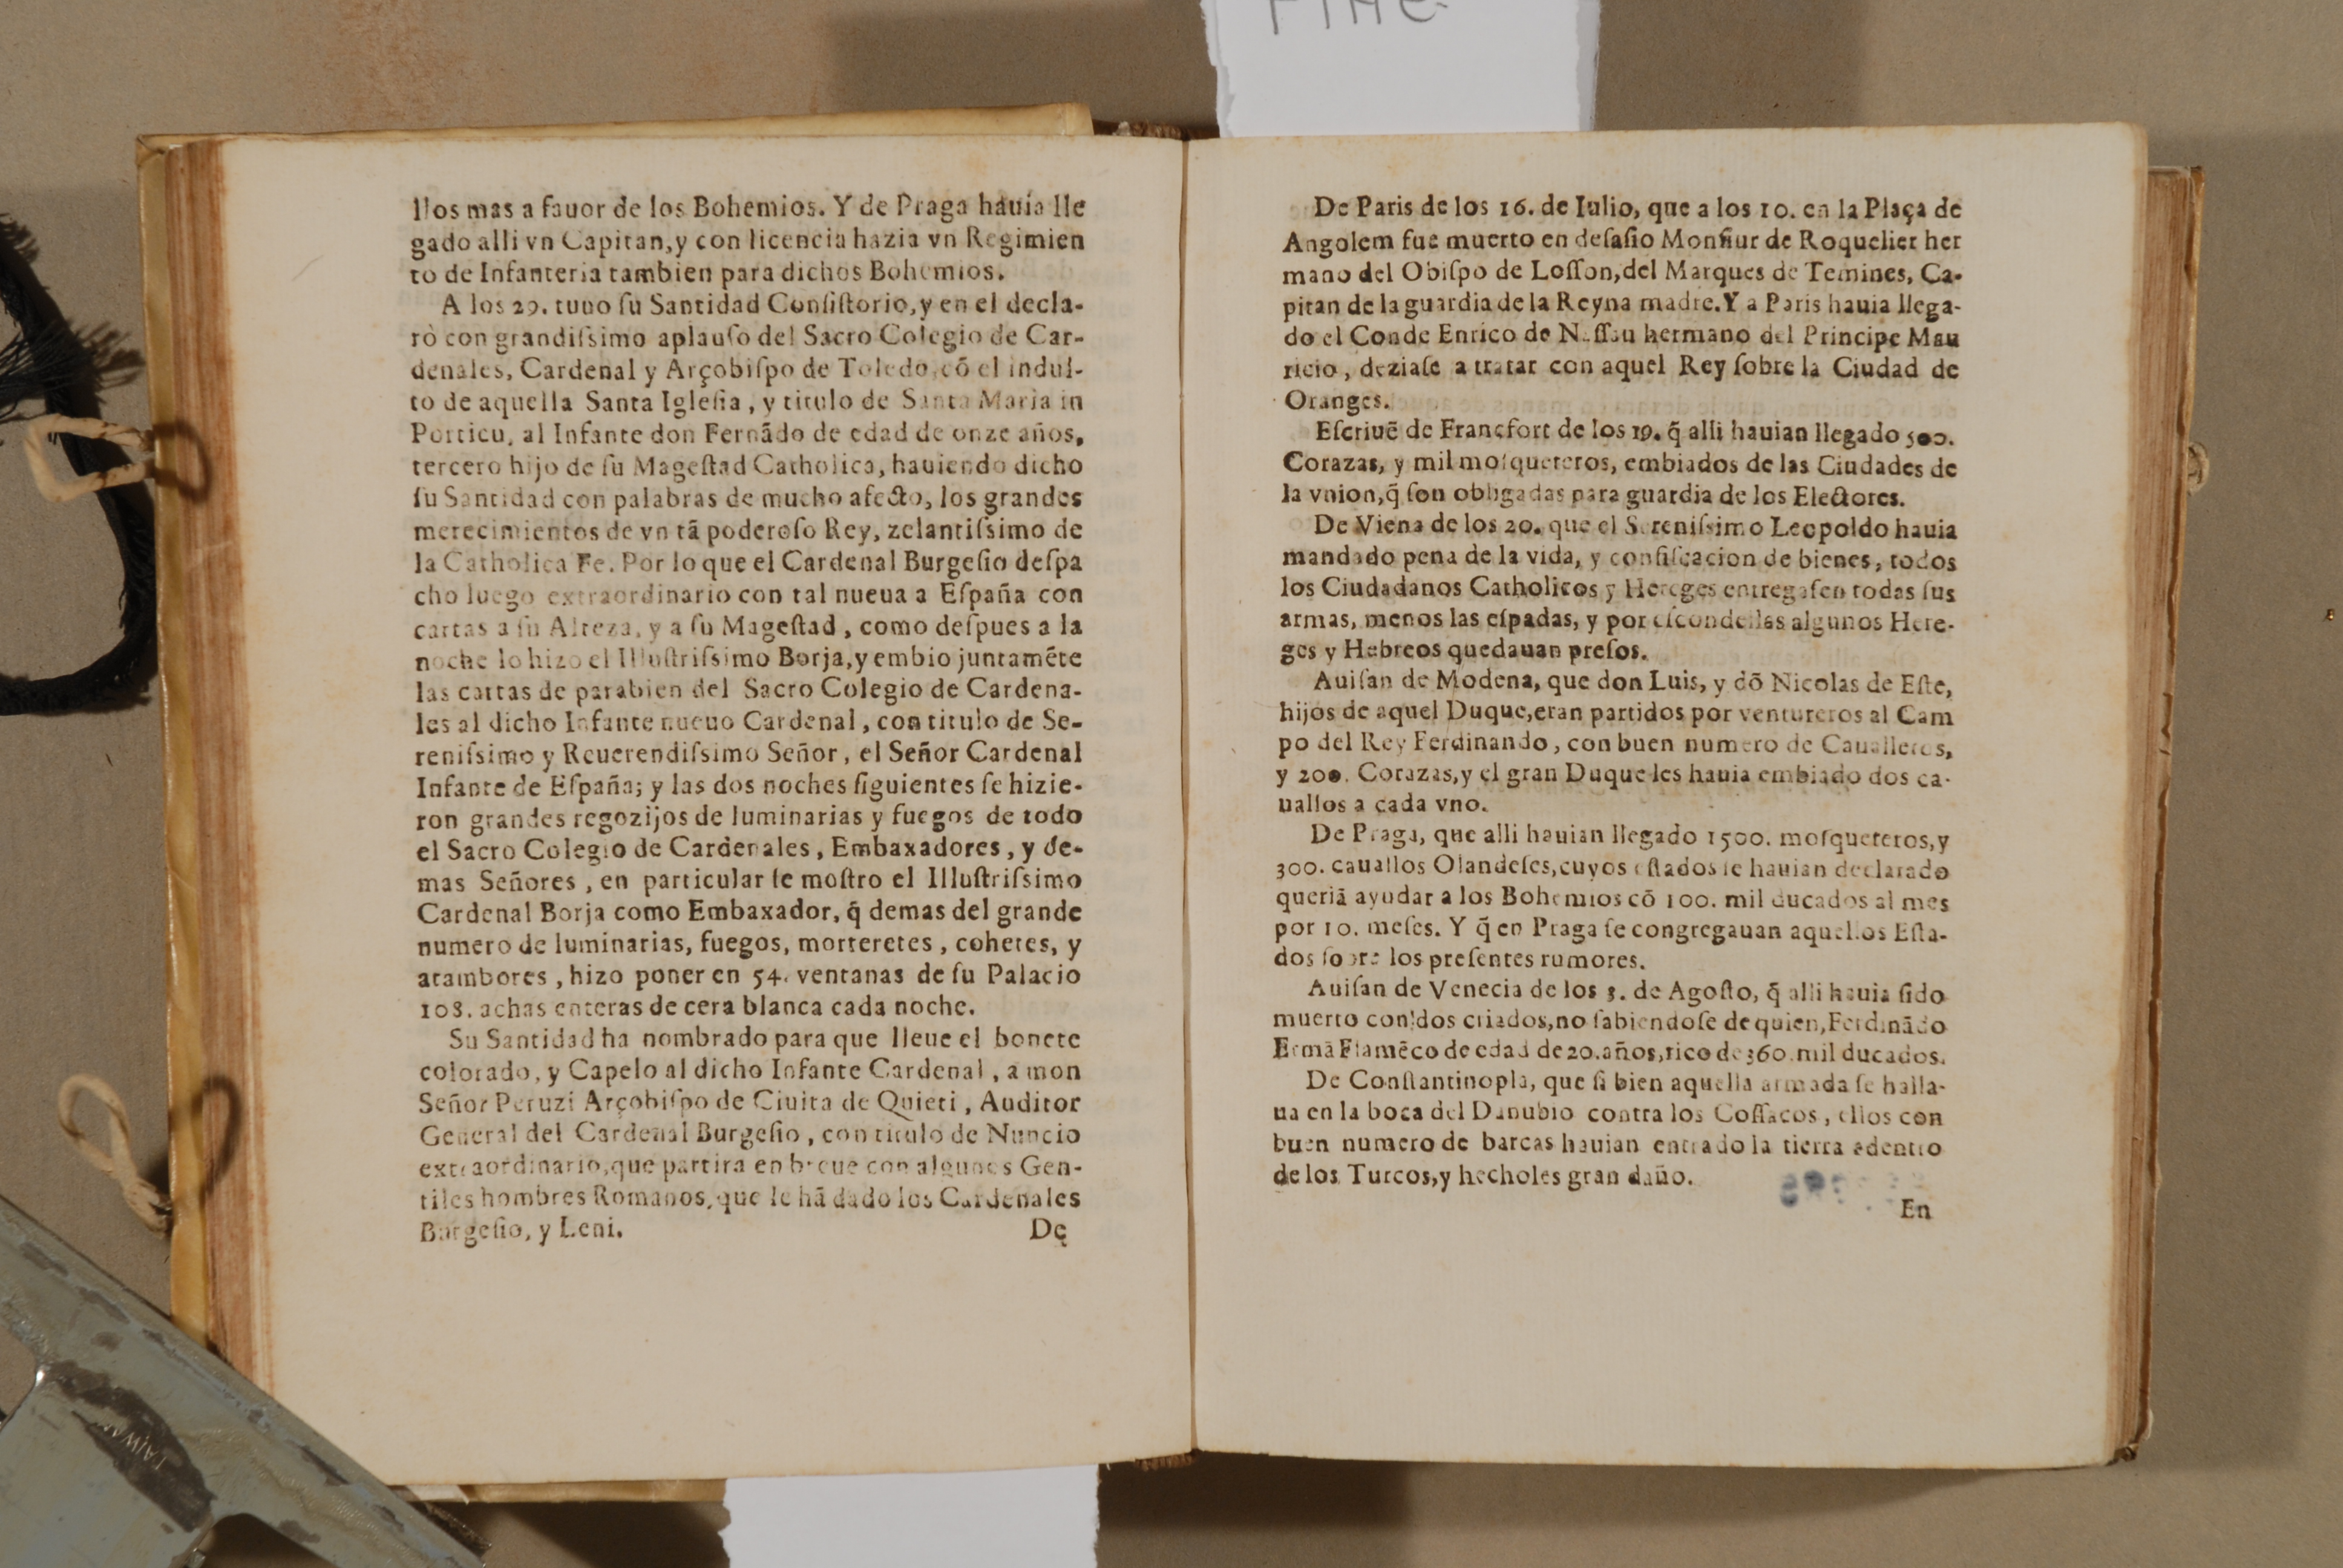 FINE
llos mas a fauor de los Bohemios. Y de Praga hauia lle
gado alli vn Capitan, y con licencia hazia vn Regimien
to de Infanteria tambien para dichos Bohemios.
A los 29. tuuo ſu Santidad Conſiſtorio, y en el decla-
rò con grandiſsimo aplauſo del Sacro Colegio de Car-
denales, Cardenal y Arçobiſpo de Toledo, cõ el indul-
to de aquella Santa Igleſia, y titulo de Santa Maria in
Porticu, al Infante don Fernãdo de edad de onze años,
tercero hijo de ſu Mageſtad Catholica, hauiendo dicho
ſu Santidad con palabras de mucho afecto, los grandes
merecimientos de vn tã poderoſo Rey, zelantiſsimo de
la Catholica Fe. Por lo que el Cardenal Burgeſio deſpa
cho luego extraordinario con tal nueua a Eſpaña con
cartas a ſu Alteza, y a ſu Mageſtad, como deſpues a la
noche lo hizo el Illuſtriſsimo Borja, y embio juntamẽte
las cartas de parabien del Sacro Colegio de Cardena-
les al dicho Infante nueuo Cardenal, con titulo de Se-
reniſsimo y Reuerendiſsimo Señor, el Señor Cardenal
Infante de Eſpaña; y las dos noches ſiguientes ſe hizie-
ron grandes regozijos de luminarias y fuegos de todo
el Sacro Colegio de Cardenales, Embaxadores, y de-
mas Señores, en particular ſe moſtro el Illuſtriſsimo
Cardenal Borja como Embaxador, q̃ demas del grande
numero de luminarias, fuegos, morteretes, cohetes, y
atambores, hizo poner en 54. ventanas de ſu Palacio
108. achas enteras de cera blanca cada noche.
Su Santidad ha nombrado para que lleue el bonete
colorado, y Capelo al dicho Infante Cardenal, a mon
Señor Peruzi Arçobiſpo de Ciuita de Quieti, Auditor
General del Cardenal Burgeſio, con titulo de Nuncio
extraordinario, que partira en breue con algunos Gen-
tiles hombres Romanos, que le hã dado los Cardenales
Burgeſio, y Leni.
De
De Paris de los 16. de Iulio, que a los 10. en la Plaça de
Angolem fue muerto en deſafio Monſiur de Roquelier her
mano del Obiſpo de Loſſon, del Marques de Temines, Ca-
pitan de la guardia de la Reyna madre. Y a Paris hauia llega-
do el Conde Enrico de Naſſau hermano del Principe Mau
ricio, deziaſe a tratar con aquel Rey ſobre la Ciudad de
Oranges.
Eſcriuẽ de Francfort de los 19. q̃ alli hauian llegado 500.
Corazas, y mil moſqueteros, embiados de las Ciudades de
la vnion, q̃ ſon obligadas para guardia de los Electores.
De Viena de los 20. que el Sereniſsimo Leopoldo hauia
mandado pena de la vida, y confiſcacion de bienes, todos
los Ciudadanos Catholicos y Hereges entregaſen todas ſus
armas, menos las eſpadas, y por eſcondellas algunos Here-
ges y Hebreos quedauan preſos.
Auiſan de Modena, que don Luis, y dõ Nicolas de Eſte,
hijos de aquel Duque, eran partidos por ventureros al Cam
po del Rey Ferdinando, con buen numero de Caualleros,
y 200. Corazas, y el gran Duque les hauia embiado dos ca-
uallos a cada vno.
De Praga, que alli hauian llegado 1500. moſqueteros, y
300. cauallos Olandeſes, cuyos eſtados ſe hauian declarado
queriã ayudar a los Bohemios cõ 100. mil ducados al mes
por 10. meſes. Y q̃ en Praga ſe congregauan aquellos Eſta-
dos ſobre los preſentes rumores.
Auiſan de Venecia de los 3. de Agoſto, q̃ alli hauia ſido
muerto con dos criados, no ſabiendoſe de quien, Ferdinãdo
Ermã Flamẽco de edad de 20. años, rico de 360. mil ducados.
De Conſtantinopla, que ſi bien aquella armada ſe halla-
ua en la boca del Danubio contra los Coſſacos, ellos con
buen numero de barcas hauian entrado la tierra adentro
de los Turcos, y hecholes gran daño.
En
TAIWAN